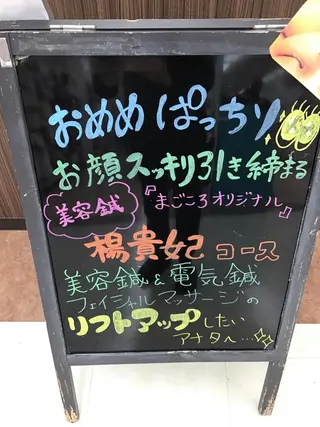 おめめ ぱっちり
お顔スッキリ引き締まる
美容鍼 『まごころオリジナル』
楊貴妃 コース
美容鍼&電気鍼
フェイシャルマッサージの
リフトアップしたい
アナタへ…